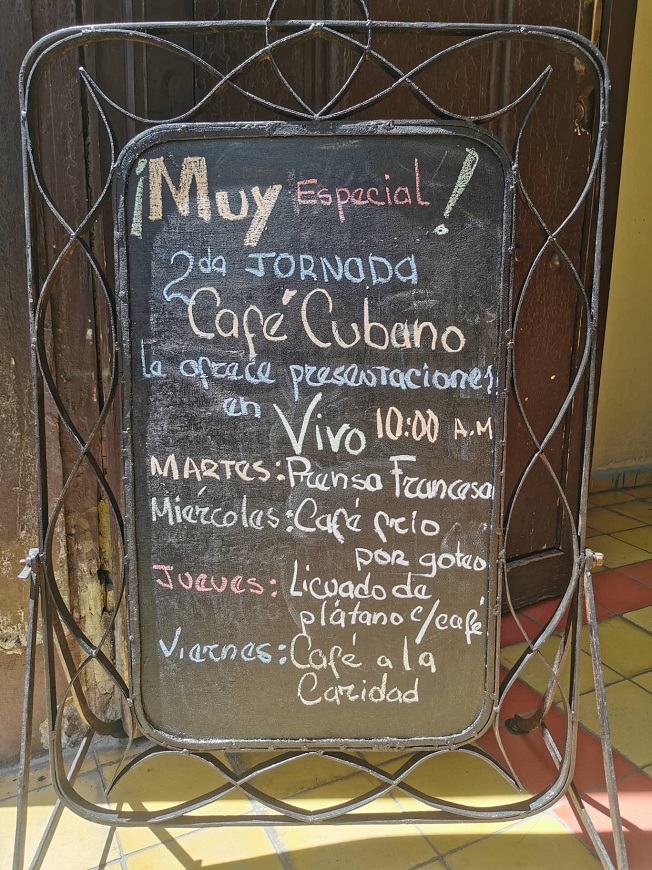 ¡Muy Especial!
2da JORNADA
Café Cubano
le ofrece presentaciones
en Vivo 10:00 A.M
MARTES: Prensa Francesa
Miércoles: Café frío
por goteo
Jueves: Licuado de
plátano c/café
Viernes: Café a la
Caridad